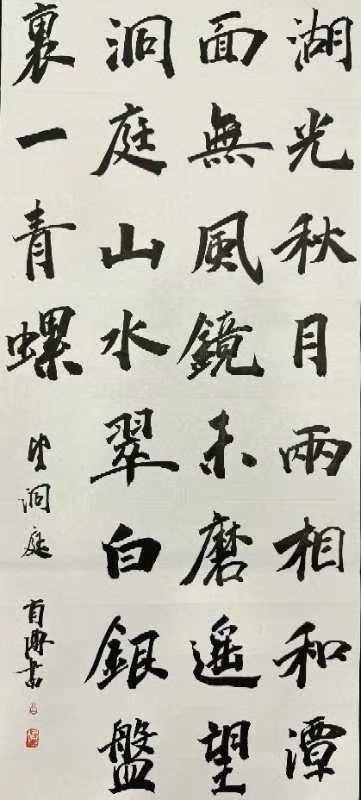 湖光秋月兩相和潭
面無風鏡未磨遥望
洞庭山水翠白銀盤
裏一青螺
望洞庭
書